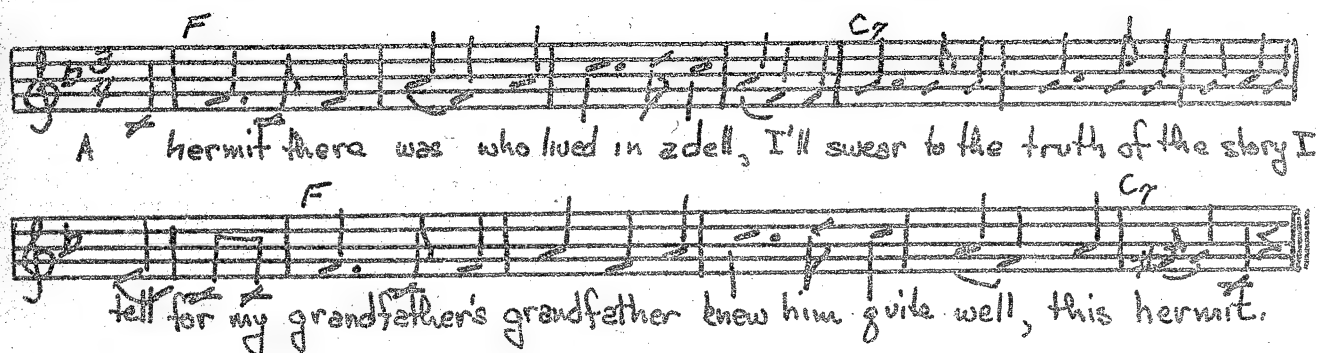 F C7
A hermit there was who lived in a dell, I'll swear to the truth of the story I
F C7
tell for my grandfather's grandfather knew him quite well, this hermit.